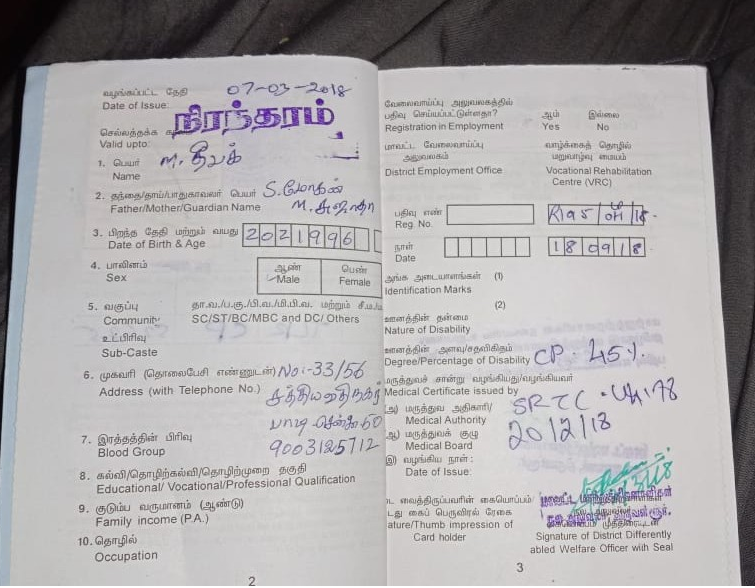 வழங்கப்பட்ட தேதி 07-03-2018
Date of Issue:
நிரந்தரம்
செல்லத்தக்க
Valid upto:
1. பெயர் M. தீபக்
Name
2. தந்தை/தாய்/பாதுகாவலர் பெயர் S. மோகன்
Father/Mother/Guardian Name M. சுஜாதா
3. பிறந்த தேதி மற்றும் வயது 2021996
Date of Birth & Age
4. பாலினம் ஆண் பெண்
Sex Male Female
5. வகுப்பு தா.வ./ப.கு./பி.வ./மி.பி.வ. மற்றும் சீ.ம.
Community SC/ST/BC/MBC and DC/ Others
உட்பிரிவு
Sub-Caste
6. முகவரி (தொலைபேசி எண்ணுடன்) No:-33/56
Address (with Telephone No.) சத்தியவதி நகர்
பாடி சென்னை 50
7. இரத்தத்தின் பிரிவு 9003125712
Blood Group
8. கல்வி/தொழிற்கல்வி/தொழிற்முறை தகுதி
Educational/ Vocational/Professional Qualification
9. குடும்ப வருமானம் (ஆண்டு)
Family income (P.A.)
10. தொழில்
Occupation
2
வேலைவாய்ப்பு அலுவலகத்தில்
பதிவு செய்யப்பட்டுள்ளதா? ஆம் இல்லை
Registration in Employment Yes No
மாவட்ட வேலைவாய்ப்பு வாழ்க்கைத் தொழில்
அலுவலகம் மறுவாழ்வு மையம்
District Employment Office Vocational Rehabilitation
Centre (VRC)
பதிவு எண்
Reg. No.
நாள் 180918
Date
அங்க அடையாளங்கள் (1)
Identification Marks
(2)
ஊனத்தின் தன்மை
Nature of Disability
ஊனத்தின் அளவு/சதவிகிதம்
Degree/Percentage of Disability CP. 45%
மருத்துவச் சான்று வழங்கியது/வழங்கியவர்
Medical Certificate issued by
அ) மருத்துவ அதிகாரி/ SRTC
Medical Authority
ஆ) மருத்துவக் குழு 20/2/18
Medical Board
இ) வழங்கிய நாள்:
Date of Issue:
வைத்திருப்பவரின் கையொப்பம்/ மாவட்ட மாற்றுத்திறனாளிகள்
டது கைப் பெருவிரல் ரேகை
ature/Thumb impression of Signature of District Differently
Card holder abled Welfare Officer with Seal
3